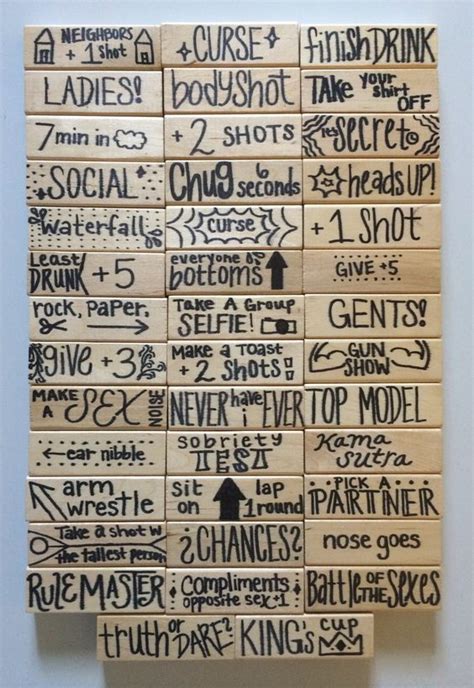 NEIGHBORS
+ 1 Shot
CURSE
finish DRINK
LADIES!
bodyshot
TAKE your
shirt
OFF
7 min in
+ 2 SHOTS
tell
Secret
SOCIAL
Chug 6
seconds
headsUP!
waterfall
curse
+ 1 SHOT
LEAST
DRUNK +5
everyone
bottoms
GIVE +5
rock, paper,
TAKE A GROUP
SELFIE!
GENTS!
give +3
MAKE A TOAST
+ 2 SHOTS!
GUN
SHOW
MAKE
A SEX NOISE
NEVER have i EVER
TOP MODEL
ear nibble
sobriety
TEST
Kama
Sutra
arm
wrestle
sit
on
lap
1 round
PICK A
PARTNER
Take a shot w
the tallest person
¿CHANCES?
nose goes
RULE MASTER
Compliments
opposite sex +1
Battle OF THE Sexes
truth or DARE?
KING's cup